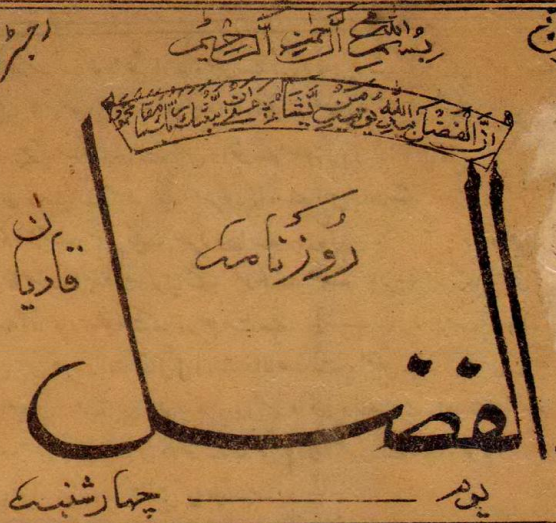 بسم اللہ الرحمن الرحیم
ان الفضل بید اللہ یوتیہ من یشاء عسیٰ ان یبعثک ربک مقاما محمودا
روزنامہ
قادیان
الفضل
یوم چہارشنبہ